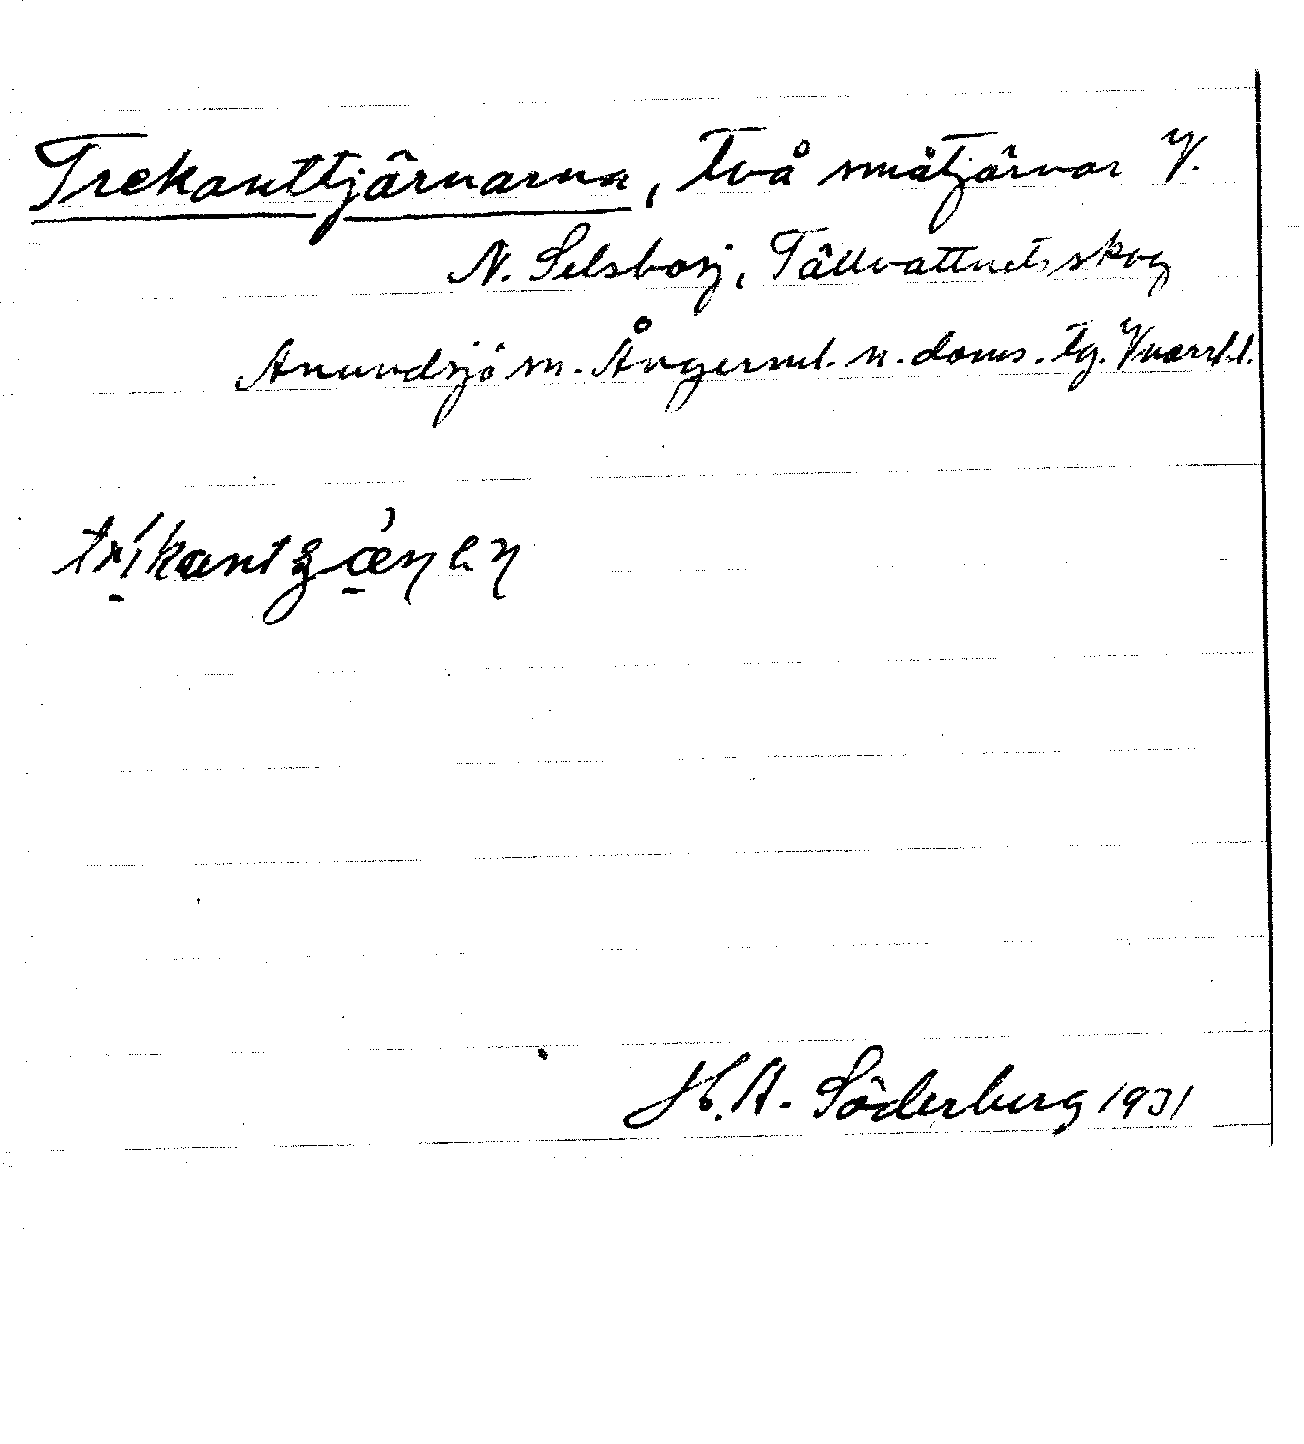 Trekanttjärnarna, två småtjärnar V.
N. Selsbosj, Tällvattnets skog
Anundsjö sn. Ångerml. n. doms. tg. Vnorrl. l.
H. A. Söderberg 1931